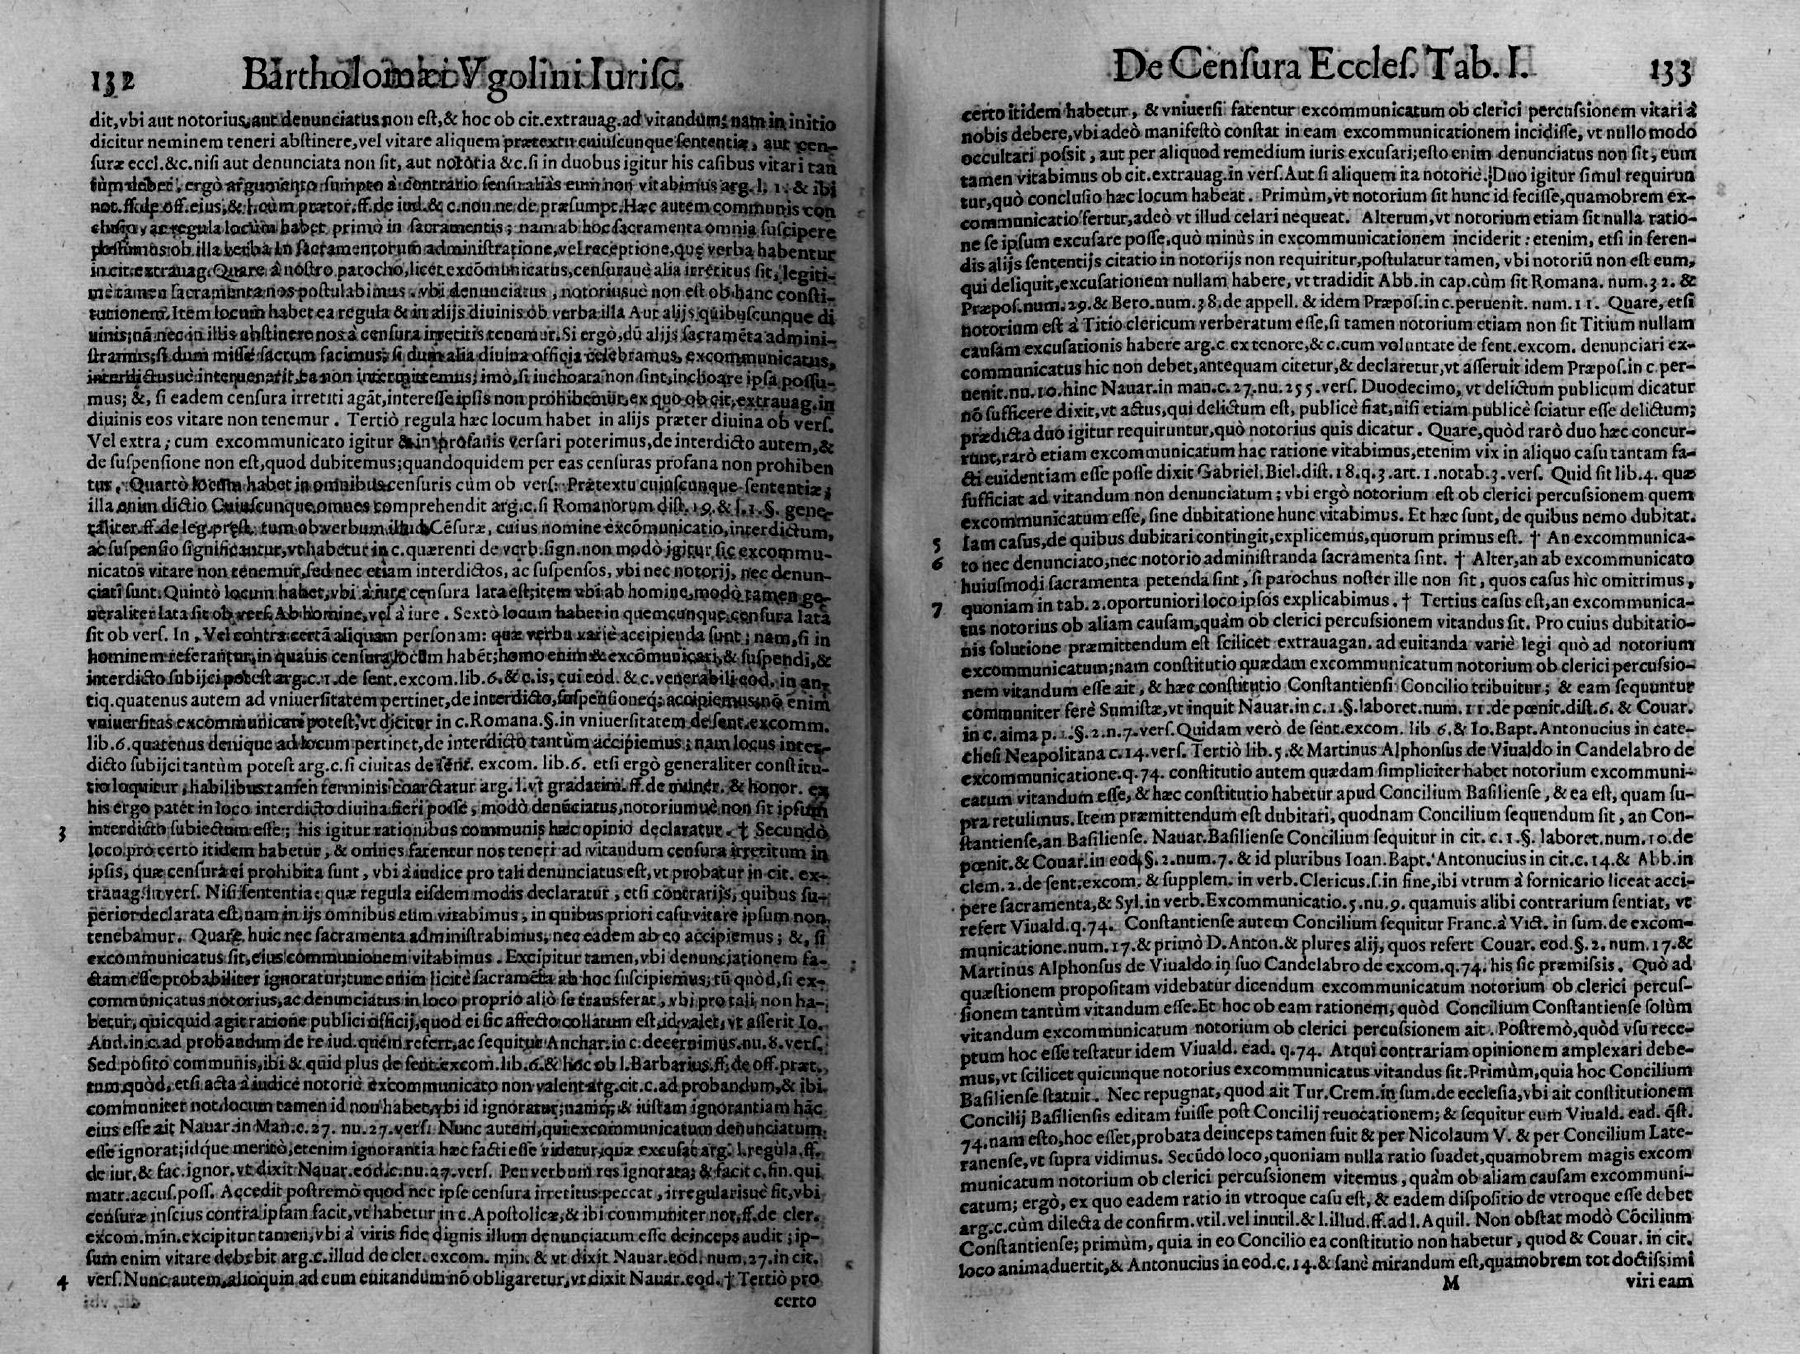 132 Bartholomæi Vgolini Iurisc.
dit, vbi aut notorius, aut denunciatus non est, & hoc ob cit. extrauag. ad vitandum; nam in initio
dicitur neminem teneri abstinere, vel vitare aliquem prætextu cuiuscunque sententiæ, aut cen-
suræ eccl. &c. nisi aut denunciata non sit, aut notoria &c. si in duobus igitur his casibus vitari tan
tùm debet, ergò argumento sumpto à contrario sensu aliàs eum non vitabimus arg. l. 1. & ibi
not. ff. de off. eius, & l. cùm prætor. ff. de iud. & c. non ne de præsumpt. Hæc autem communis con
clusio, ac regula locùm habet primò in sacramentis; nam ab hoc sacramenta omnia suscipere
possumus ob illa verba In sacramentorum administratione, vel receptione, quę verba habentur
in cit. extrauag. Quare à nostro parocho, licèt excōmunicatus, censurauè alia irretitus sit, legiti-
mè tamen sacramenta nos postulabimus, vbi denunciatus, notoriusuè non est ob hanc consti-
tutionem. Item locum habet ea regula & in alijs diuinis ob verba illa Aut alijs quibuscunque di
uinis; nā nec in illis abstinere nos à censura irretitis tenemur. Si ergò, dū alijs sacramēta admini-
stramus; si dum missę sacrum facimus; si dum alia diuina officia celebramus, excommunicatus,
interdictusuè interuenerit, ea non intermittemus; imò, si inchoata non sint, inchoare ipsa possu-
mus; &, si eadem censura irretiti agāt, interesse ipsis non prohibemur, ex quo ob cit. extrauag. in
diuinis eos vitare non tenemur. Tertiò regula hæc locum habet in alijs præter diuina ob vers.
Vel extra; cum excommunicato igitur & in profanis versari poterimus, de interdicto autem, &
de suspensione non est, quod dubitemus; quandoquidem per eas censuras profana non prohiben
tur. Quartò locum habet in omnibus censuris cùm ob vers. Prætextu cuiuscunque sententiæ;
illa enim dictio Cuiuscunque omnes comprehendit arg. c. si Romanorum dist. 19. & l. 1. §. gene-
raliter. ff. de leg. pręst. tum ob verbum illud Cēsuræ, cuius nomine excōmunicatio, interdictum,
ac suspensio significantur, vt habetur in c. quærenti de verb. sign. non modò igitur sic excommu-
nicatos vitare non tenemur, sed nec etiam interdictos, ac suspensos, vbi nec notorij, nec denun-
ciati sunt. Quintò locum habet, vbi à iure censura lata est; item vbi ab homine, modò tamen ge-
neraliter lata sit ob vers. Ab homine, vel à iure. Sextò locum habet in quemcunque censura lata
sit ob vers. In, Vel contra certā aliquam personam: quæ verba variè accipienda sunt; nam, si in
hominem referantur, in quauis censura locum habēt; homo enim & excōmunicari, & suspendi, &
interdicto subijci potest arg. c. 1. de sent. excom. lib. 6. & c. is, cui eod. & c. venerabili eod. in an-
tiq. quatenus autem ad vniuersitatem pertinet, de interdicto, suspensioneq; accipiemus, nō enim
vniuersitas excommunicari potest, vt dicitur in c. Romana. §. in vniuersitatem de sent. excomm.
lib. 6. quatenus denique ad locum pertinet, de interdicto tantùm accipiemus; nam locus inter-
dicto subijci tantùm potest arg. c. si ciuitas de sent. excom. lib. 6. etsi ergò generaliter constitu-
tio loquitur, habilibus tamen terminis coarctatur arg. l. vt gradatim. ff. de muner. & honor. ex
his ergo patet in loco interdicto diuina fieri posse, modò denunciatus, notoriumuè non sit ipsum
3 interdicto subiectum esse; his igitur rationibus communis hæc opinio declaratur. † Secundò
loco pro certo itidem habetur, & omnes fatentur nos teneri ad vitandum censura irretitum in
ipsis, quæ censura ei prohibita sunt, vbi à iudice pro tali denunciatus est, vt probatur in cit. ex-
trauag. in vers. Nisi sententia; quæ regula eisdem modis declaratur, etsi contrarijs, quibus su-
perior declarata est; nam in ijs omnibus eum vitabimus, in quibus priori casu vitare ipsum non
tenebamur. Quare huic nec sacramenta administrabimus, nec eadem ab eo accipiemus; &, si
excommunicatus sit, eius communionem vitabimus. Excipitur tamen, vbi denunciationem fa-
ctam esse probabiliter ignoratur; tunc enim licitè sacramēta ab hoc suscipiemus; tū quòd, si ex-
communicatus notorius, ac denunciatus in loco proprio aliò se transferat, vbi pro tali non ha-
betur, quicquid agit ratione publici officij, quod ei sic affecto collatum est, id valet, vt asserit Io.
And. in c. ad probandum de re iud. quem refert, ac sequitur Anchar. in c. decernimus. nu. 8. vers.
Sed posito communis, ibi & quid plus de sent. excom. lib. 6. & hoc ob l. Barbarius. ff. de off. præt.
tum quòd, etsi acta à iudice notoriè excommunicato non valent arg. cit. c. ad probandum, & ibi
communiter not. locum tamen id non habet, vbi id ignoratur; namq; & iustam ignorantiam hāc
eius esse ait Nauar. in Man. c. 27. nu. 27. vers. Nunc autem, qui excommunicatum denunciatum
esse ignorat; idque meritò, etenim ignorantia hæc facti esse videtur, quæ excusat arg. l. regula. ff.
de iur. & fac. ignor. vt dixit Nauar. eod. c. nu. 27. vers. Per verbum res ignorata; & facit c. fin. qui
matr. accus. poss. Accedit postremò quod nec ipse censura irretitus peccat, irregularisuè fit, vbi
censuræ inscius contra ipsam facit, vt habetur in c. Apostolicæ, & ibi communiter not. ff. de cler.
excom. min. excipitur tamen, vbi à viris fide dignis illum denunciatum esse deinceps audit; ip-
sum enim vitare debebit arg. c. illud de cler. excom. min. & vt dixit Nauar. eod. num. 27. in cit.
4 vers. Nunc autem, alioquin ad eum euitandum nō obligaretur, vt dixit Nauar. eod. † Tertiò pro
certo
De Censura Eccles. Tab. I. 133
certo itidem habetur, & vniuersi fatentur excommunicatum ob clerici percussionem vitari à
nobis debere, vbi adeò manifestò constat in eam excommunicationem incidisse, vt nullo modo
occultari possit, aut per aliquod remedium iuris excusari; esto enim denunciatus non sit, eum
tamen vitabimus ob cit. extrauag. in vers. Aut si aliquem ita notoriè. Duo igitur simul requirun
tur, quò conclusio hæc locum habeat. Primùm, vt notorium sit hunc id fecisse, quamobrem ex-
communicatio fertur, adeò vt illud celari nequeat. Alterum, vt notorium etiam sit nulla ratio-
ne se ipsum excusare posse, quò minùs in excommunicationem inciderit: etenim, etsi in feren-
dis alijs sententijs citatio in notorijs non requiritur, postulatur tamen, vbi notoriū non est eum,
qui deliquit, excusationem nullam habere, vt tradidit Abb. in cap. cùm sit Romana. num. 32. &
Præpos. num. 29. & Bero. num. 38. de appell. & idem Præpos. in c. peruenit. num. 11. Quare, etsi
notorium est à Titio clericum verberatum esse, si tamen notorium etiam non sit Titium nullam
causam excusationis habere arg. c. ex tenore, & c. cum voluntate de sent. excom. denunciari ex-
communicatus hic non debet, antequam citetur, & declaretur, vt asseruit idem Præpos. in c. per-
uenit. nu. 10. hinc Nauar. in man. c. 27. nu. 255. vers. Duodecimo, vt delictum publicum dicatur
nō sufficere dixit, vt actus, qui delictum est, publicè fiat, nisi etiam publicè sciatur esse delictum;
prædicta duo igitur requiruntur, quò notorius quis dicatur. Quare, quòd rarò duo hæc concur-
runt, rarò etiam excommunicatum hac ratione vitabimus, etenim vix in aliquo casu tantam fa-
cti euidentiam esse posse dixit Gabriel. Biel. dist. 18. q. 3. art. 1. notab. 3. vers. Quid sit lib. 4. quæ
sufficiat ad vitandum non denunciatum; vbi ergò notorium est ob clerici percussionem quem
excommunicatum esse, sine dubitatione hunc vitabimus. Et hæc sunt, de quibus nemo dubitat.
5 Iam casus, de quibus dubitari contingit, explicemus, quorum primus est. † An excommunica-
6 to nec denunciato, nec notorio administranda sacramenta sint. † Alter, an ab excommunicato
huiusmodi sacramenta petenda sint, si parochus noster ille non sit, quos casus hìc omittimus,
7 quoniam in tab. 2. oportuniori loco ipsos explicabimus. † Tertius casus est, an excommunica-
tus notorius ob aliam causam, quàm ob clerici percussionem vitandus sit. Pro cuius dubitatio-
nis solutione præmittendum est scilicet extrauagan. ad euitanda variè legi quò ad notorium
excommunicatum; nam constitutio quædam excommunicatum notorium ob clerici percussio-
nem vitandum esse ait, & hæc constitutio Constantiensi Concilio tribuitur; & eam sequuntur
communiter ferè Sumistæ, vt inquit Nauar. in c. 1. §. laboret. num. 11. de pœnit. dist. 6. & Couar.
in c. alma p. 1. §. 2. n. 7. vers. Quidam verò de sent. excom. lib 6. & Io. Bapt. Antonucius in cate-
chesi Neapolitana c. 14. vers. Tertiò lib. 5. & Martinus Alphonsus de Viualdo in Candelabro de
excommunicatione. q. 74. constitutio autem quædam simpliciter habet notorium excommuni-
catum vitandum esse, & hæc constitutio habetur apud Concilium Basiliense, & ea est, quam su-
pra retulimus. Item præmittendum est dubitari, quodnam Concilium sequendum sit, an Con-
stantiense, an Basiliense. Nauar. Basiliense Concilium sequitur in cit. c. 1. §. laboret. num. 10. de
pœnit. & Couar. in eod. §. 2. num. 7. & id pluribus Ioan. Bapt. Antonucius in cit. c. 14. & Abb. in
clem. 2. de sent. excom. & supplem. in verb. Clericus. s. in fine, ibi vtrum à fornicario liceat acci-
pere sacramenta, & Syl. in verb. Excommunicatio. 5. nu. 9. quamuis alibi contrarium sentiat, vt
refert Viuald. q. 74. Constantiense autem Concilium sequitur Franc. à Vict. in sum. de excom-
municatione. num. 17. & primò D. Anton. & plures alij, quos refert Couar. eod. §. 2. num. 17. &
Martinus Alphonsus de Viualdo in suo Candelabro de excom. q. 74. his sic præmissis. Quò ad
quæstionem propositam videbatur dicendum excommunicatum notorium ob clerici percus-
sionem tantùm vitandum esse. Et hoc ob eam rationem, quòd Concilium Constantiense solùm
vitandum excommunicatum notorium ob clerici percussionem ait. Postremò, quòd vsu rece-
ptum hoc esse testatur idem Viuald. ead. q. 74. Atqui contrariam opinionem amplexari debe-
mus, vt scilicet quicunque notorius excommunicatus vitandus sit. Primùm, quia hoc Concilium
Basiliense statuit. Nec repugnat, quod ait Tur. Crem. in sum. de ecclesia, vbi ait constitutionem
Concilij Basiliensis editam fuisse post Concilij reuocationem; & sequitur eum Viuald. ead. qst.
74. nam esto, hoc esset, probata deinceps tamen fuit & per Nicolaum V. & per Concilium Late-
ranense, vt supra vidimus. Secūdo loco, quoniam nulla ratio suadet, quamobrem magis excom
municatum notorium ob clerici percussionem vitemus, quàm ob aliam causam excommuni-
catum; ergò, ex quo eadem ratio in vtroque casu est, & eadem dispositio de vtroque esse debet
arg. c. cùm dilecta de confirm. vtil. vel inutil. & l. illud. ff. ad l. Aquil. Non obstat modò Cōcilium
Constantiense; primùm, quia in eo Concilio ea constitutio non habetur, quod & Couar. in cit.
loco animaduertit, & Antonucius in eod. c. 14. & sanè mirandum est, quamobrem tot doctissimi
M viri eam